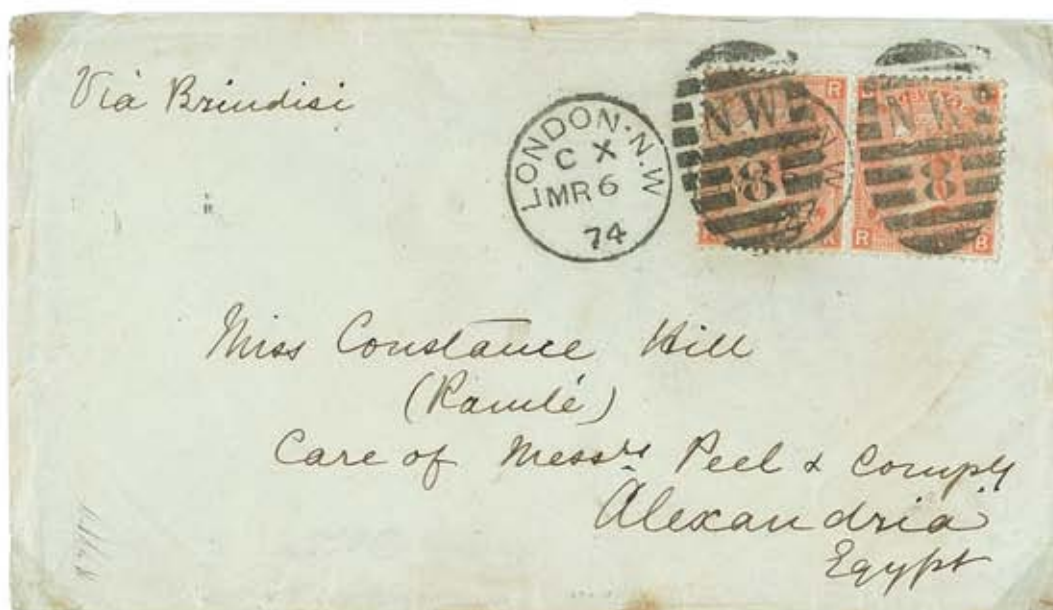 Via Brindisi
LONDON·N.W
C X
MR 6
74
NW
8
N.W
R
R
NW
8
R B
Miss Constance Hill
(Ramlé)
Care of Messrs Peel & Compy
Alexandria
Egypt